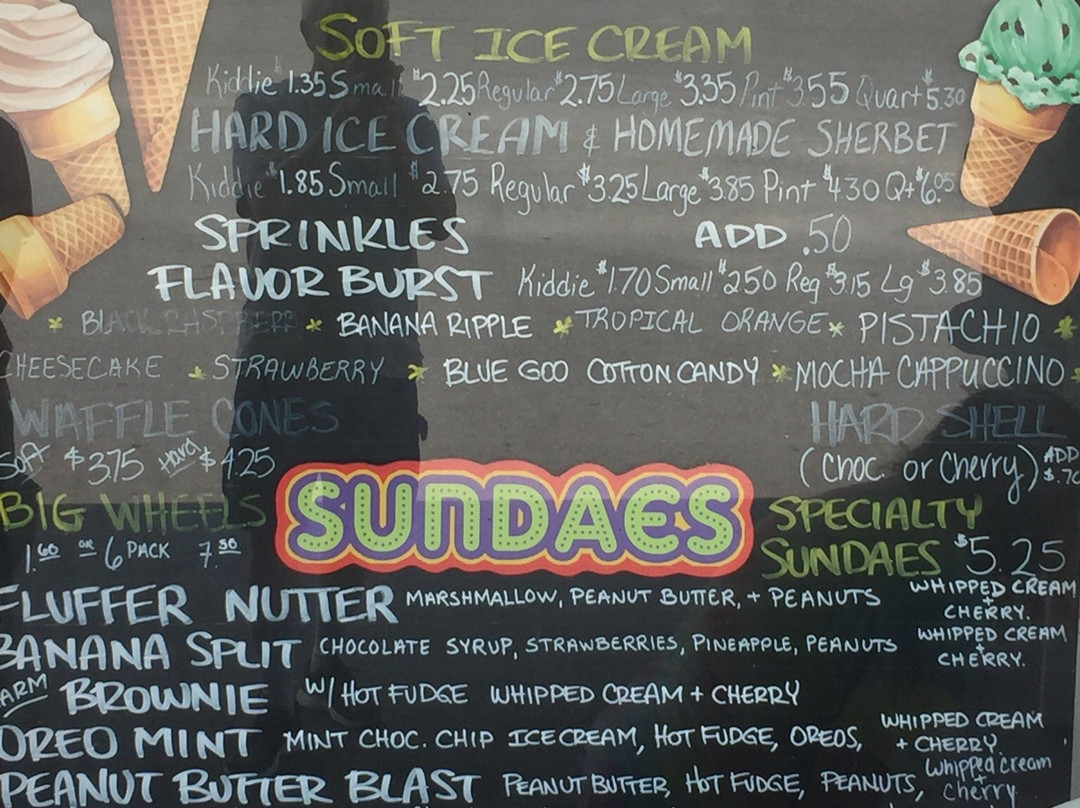 SOFT ICE CREAM
Kiddie 1.35 Small $2.25 Regular $2.75 Large $3.35 Pint $3.55 Quart $5.30
HARD ICE CREAM & HOMEMADE SHERBET
Kiddie $1.85 Small $2.75 Regular $3.25 Large $3.85 Pint $4.30 Qt $6.05
SPRINKLES ADD .50
FLAVOR BURST Kiddie $1.70 Small $2.50 Reg $3.15 Lg $3.85
* BLACK RASPBERR * BANANA RIPPLE * TROPICAL ORANGE * PISTACHIO *
CHEESECAKE * STRAWBERRY * BLUE GOO COTTON CANDY * MOCHA CAPPUCCINO *
WAFFLE CONES HARD SHELL
Soft $3.75 Hard $4.25 (Choc. or Cherry) ADD $.70
BIG WHEELS SUNDAES SPECIALTY
1.60 OR 6 PACK 7.50 SUNDAES $5.25
FLUFFER NUTTER MARSHMALLOW, PEANUT BUTTER, + PEANUTS WHIPPED CREAM + CHERRY.
BANANA SPLIT CHOCOLATE SYRUP, STRAWBERRIES, PINEAPPLE, PEANUTS WHIPPED CREAM + CHERRY.
ARM BROWNIE W/ HOT FUDGE WHIPPED CREAM + CHERRY
OREO MINT MINT CHOC. CHIP ICE CREAM, HOT FUDGE, OREOS, WHIPPED CREAM + CHERRY
PEANUT BUTTER BLAST PEANUT BUTTER, HOT FUDGE, PEANUTS, Whipped Cream + Cherry